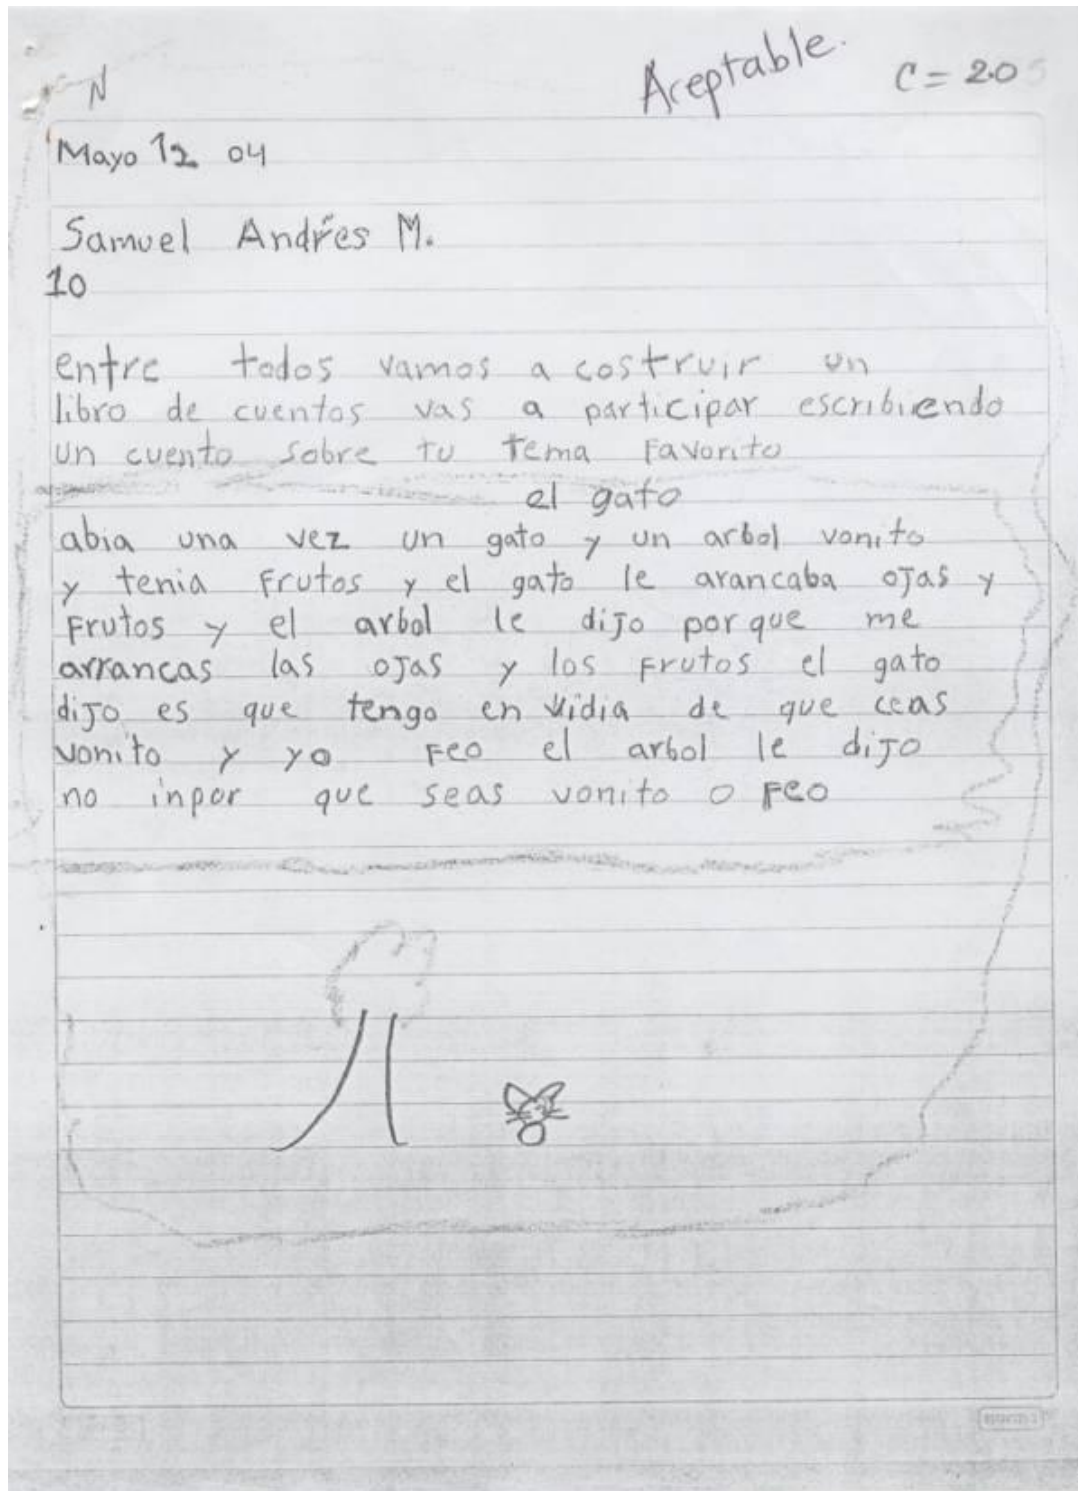 N
Aceptable.
C = 20
Mayo 12 04
Samuel Andrés M.
10
entre todos vamos a costruir un
libro de cuentos vas a participar escribiendo
un cuento sobre tu tema Favorito
el gato
abia una vez un gato y un arbol vonito
y tenia Frutos y el gato le arancaba ojas y
Frutos y el arbol le dijo por que me
arrancas las ojas y los Frutos el gato
dijo es que tengo en vidia de que ceas
vonito y yo Feo el arbol le dijo
no inpor que seas vonito o Feo